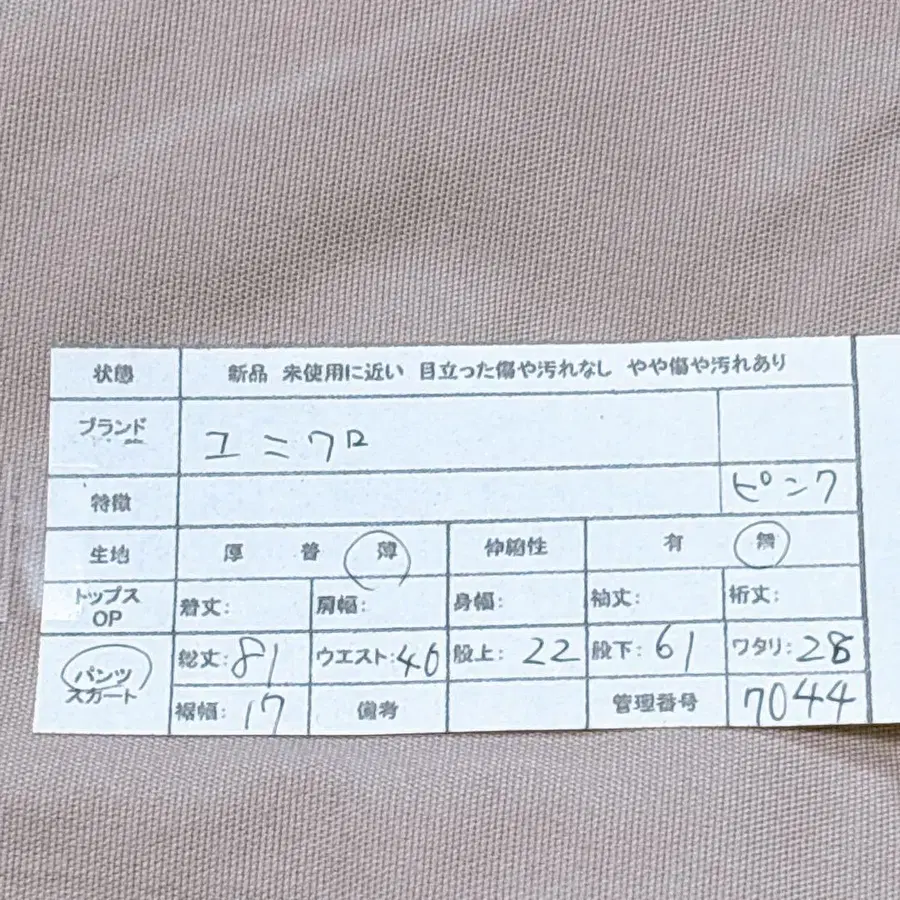 状態 新品 未使用に近い 目立った傷や汚れなし やや傷や汚れあり
ブランド ユニクロ
特徴 ピンク
生地 厚 普 薄 伸縮性 有 無
トップス OP 着丈: 肩幅: 身幅: 袖丈: 裄丈:
パンツ スカート 総丈:81 ウエスト:40 股上:22 股下:61 ワタリ:28
裾幅:17 備考 管理番号 7044